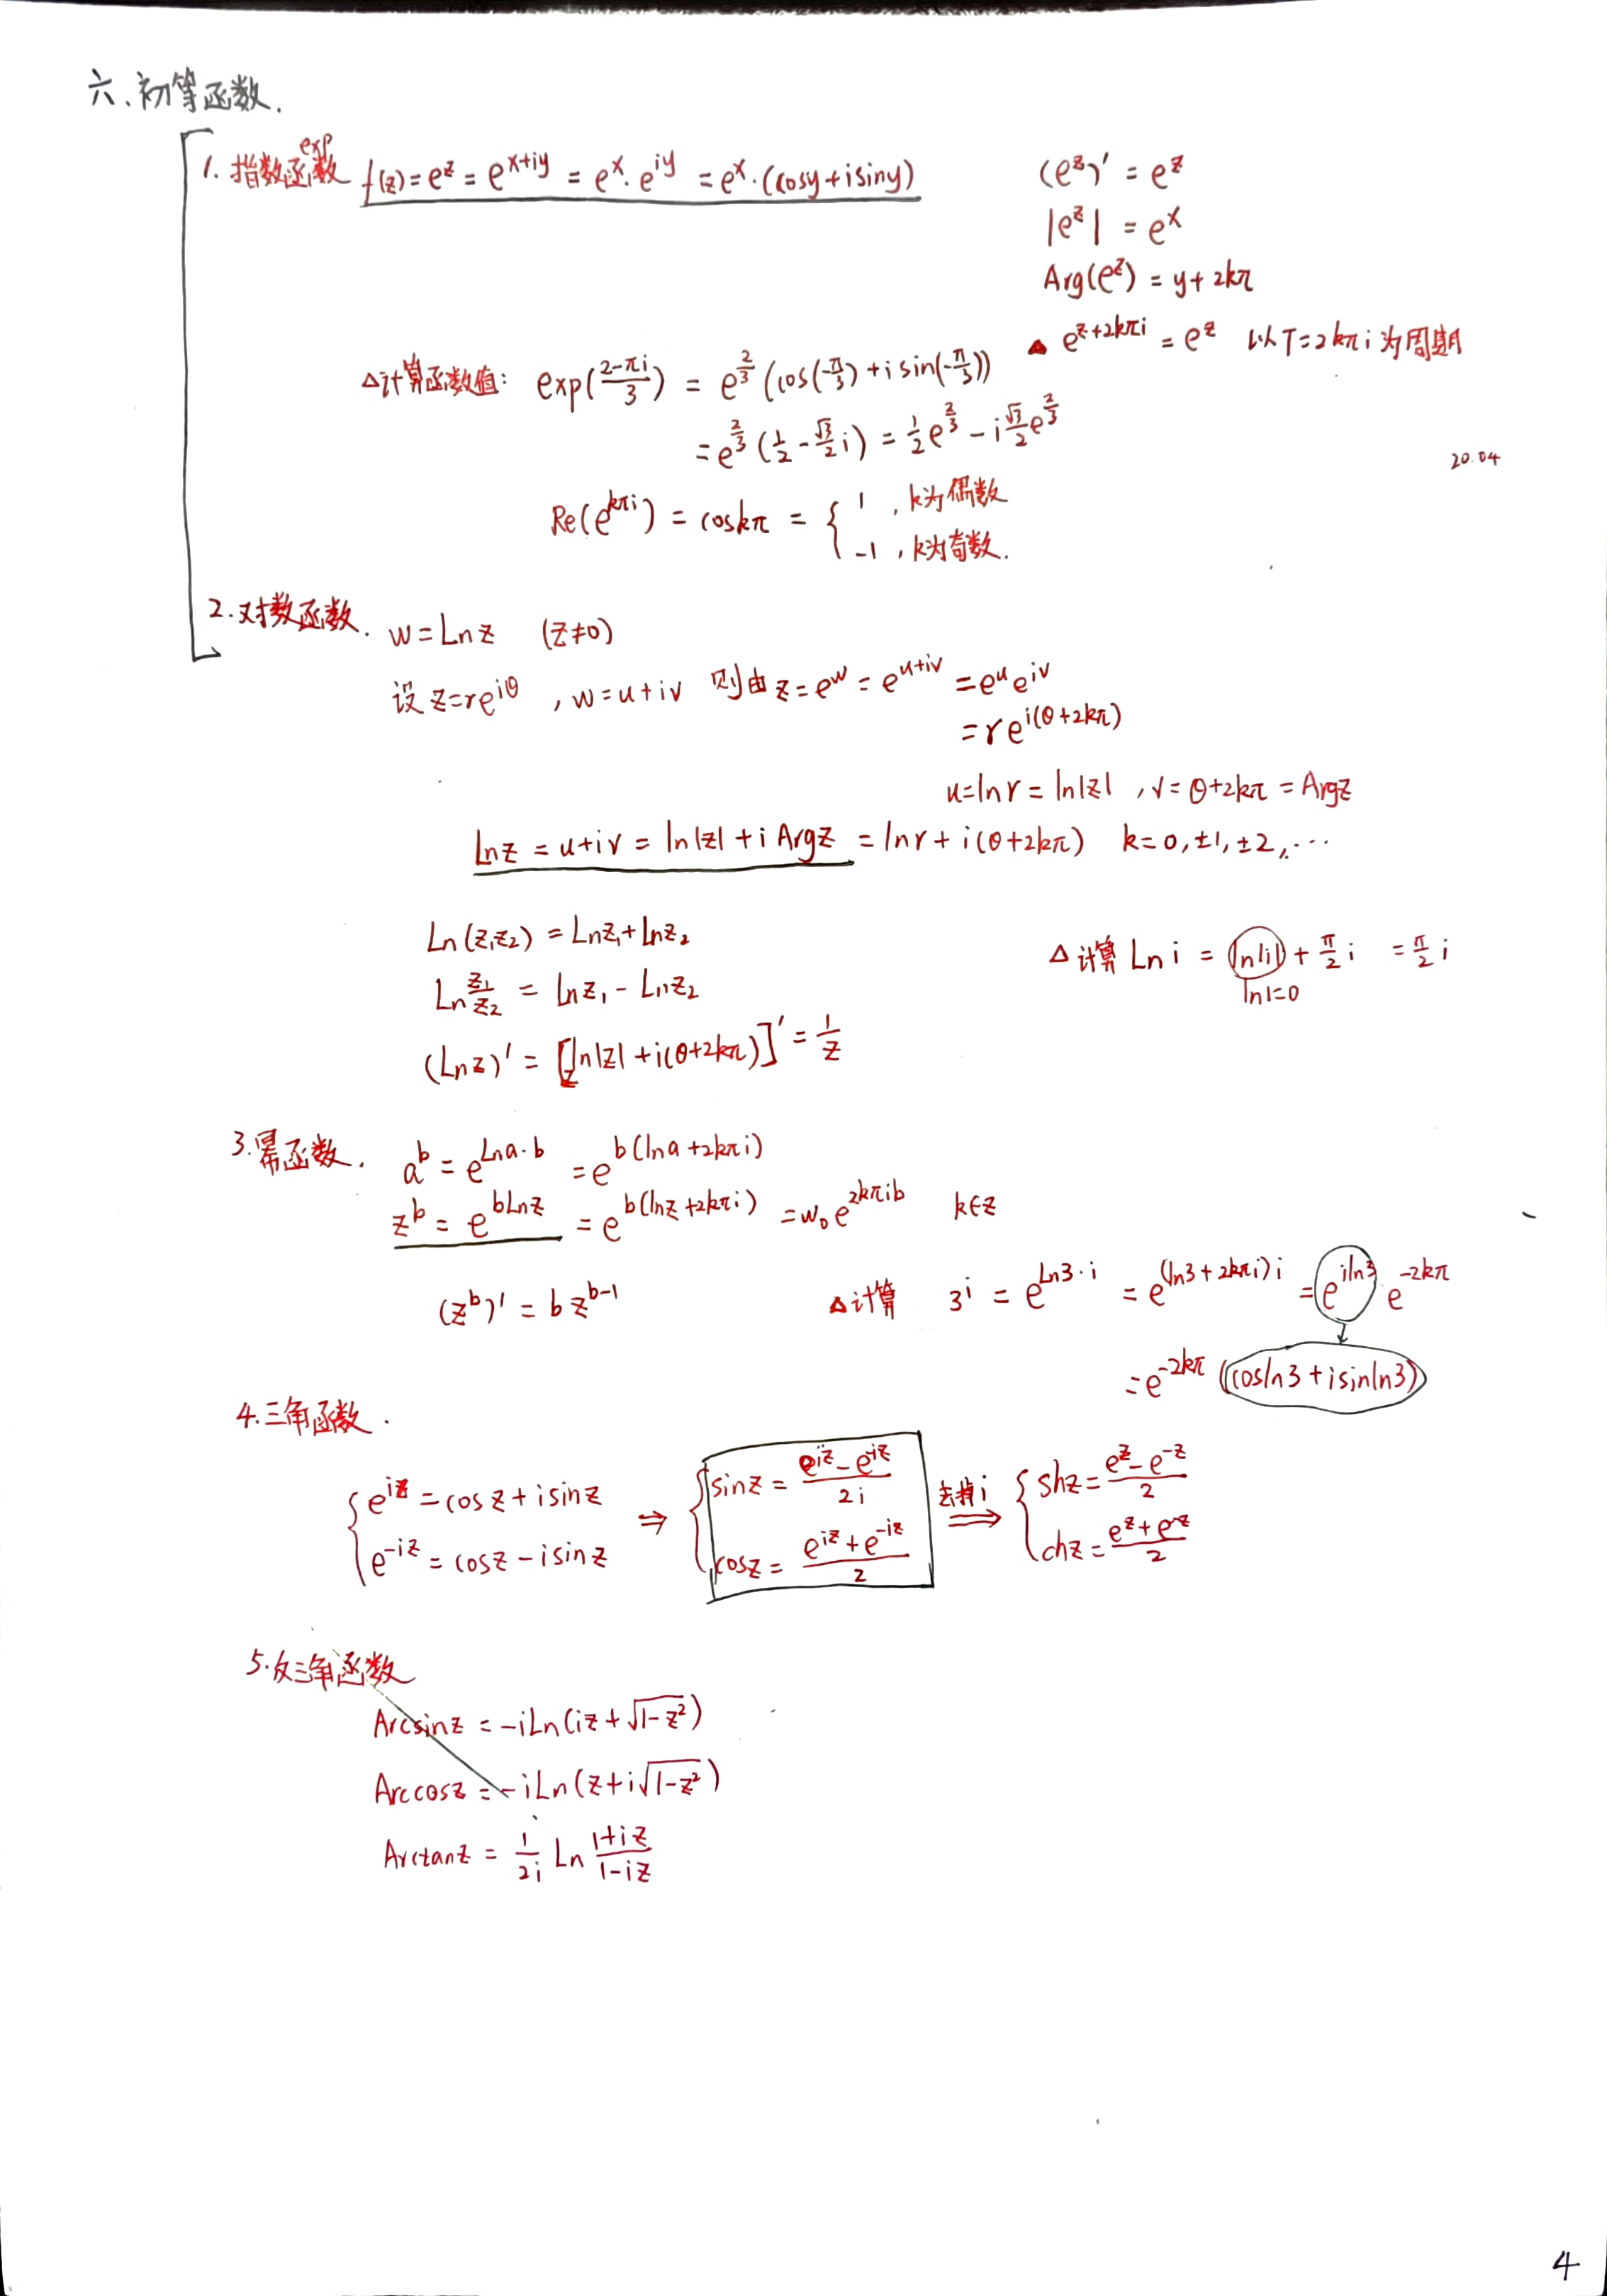 六、初等函数.
1. 指数函数 exp f(z)=e^z = e^{x+iy} = e^x·e^{iy} = e^x·(cosy+isiny)
(e^z)' = e^z
|e^z| = e^x
Arg(e^z) = y+2kπ
▲ e^{z+2kπi} = e^z 以T=2kπi为周期
△计算函数值: exp(\frac{2-πi}{3}) = e^{\frac{2}{3}}(cos(-\frac{π}{3})+isin(-\frac{π}{3}))
= e^{\frac{2}{3}}(\frac{1}{2}-\frac{√3}{2}i) = \frac{1}{2}e^{\frac{2}{3}} - i\frac{√3}{2}e^{\frac{2}{3}}
20.04
Re(e^{kπi}) = coskπ = { 1 , k为偶数
-1 , k为奇数.
2.对数函数. w=Lnz (z≠0)
设 z=re^{iθ} , w=u+iv 则由 z=e^w = e^{u+iv} = e^u e^{iv}
= re^{i(θ+2kπ)}
u=lnr = ln|z| , v=θ+2kπ = Argz
Lnz = u+iv = ln|z| + i Argz = lnr + i(θ+2kπ) k=0,±1,±2,…
Ln(z₁z₂) = Lnz₁+Lnz₂
Ln\frac{z₁}{z₂} = Lnz₁ - Lnz₂
(Lnz)' = [ln|z| + i(θ+2kπ)]' = \frac{1}{z}
△ 计算 Ln i = ln|i| + \frac{π}{2}i = \frac{π}{2}i
ln1=0
3.幂函数. a^b = e^{Lna·b} = e^{b(lna+2kπi)}
z^b = e^{bLnz} = e^{b(lnz+2kπi)} = w₀e^{2kπib} k∈z
(z^b)' = bz^{b-1}
△计算 3^i = e^{Ln3·i} = e^{(ln3+2kπi)i} = e^{iln3} e^{-2kπ}
= e^{-2kπ}(cosln3+isinln3)
4.三角函数.
{ e^{iz} = cosz+isinz
e^{-iz} = cosz-isinz
⇒ { sinz = \frac{e^{iz}-e^{-iz}}{2i}
cosz = \frac{e^{iz}+e^{-iz}}{2}
去掉i ⟹ { shz = \frac{e^z-e^{-z}}{2}
chz = \frac{e^z+e^{-z}}{2}
5.反三角函数
Arcsinz = -iLn(iz+√(1-z²))
Arccosz = -iLn(z+i√(1-z²))
Arctanz = \frac{1}{2i} Ln \frac{1+iz}{1-iz}
4